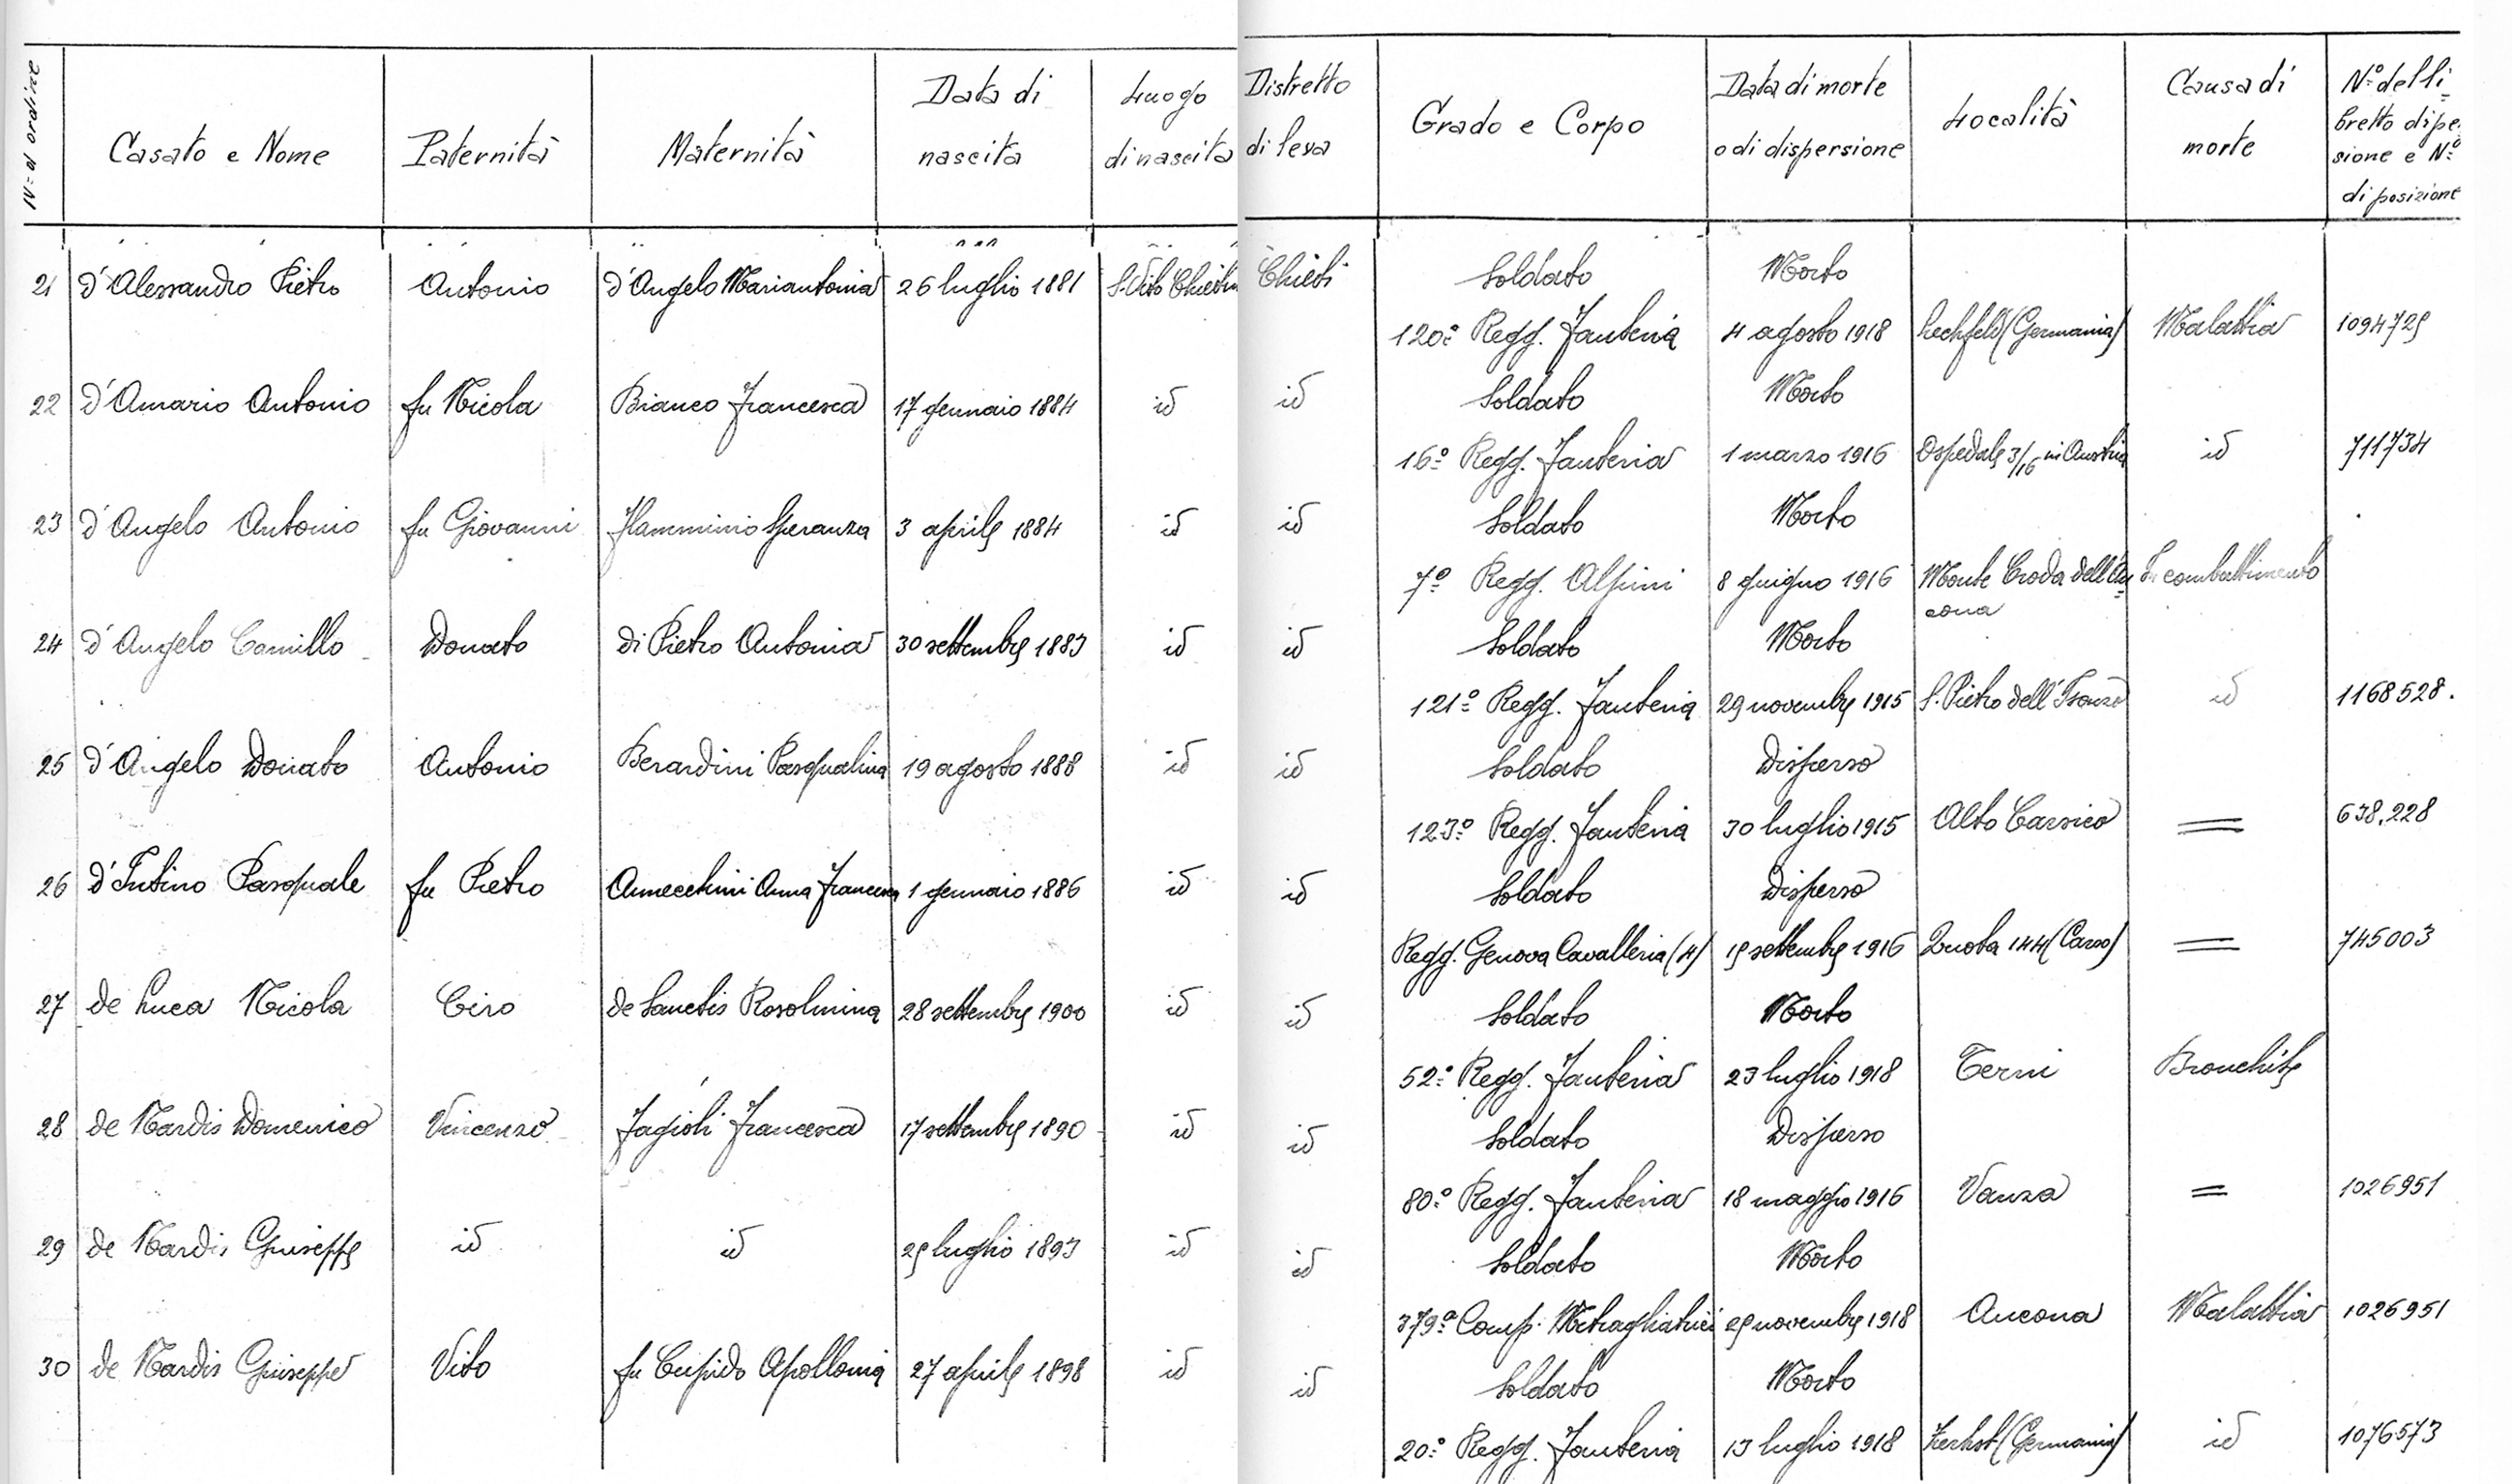 N.º d'ordine | Casato e Nome | Paternità | Maternità | Data di nascita | Luogo di nascita | Distretto di leva | Grado e Corpo | Data di morte o di dispersione | Località | Causa di morte | Nº del li=bretto di pe.sione e Nº di posizione
21 d'Alessandro Pietro | Antonio | d'Angelo Mariantonia | 26 luglio 1881 | S. Vito Chietin | Chieti | Soldato | Morto
120º Regg. Fanteria | 4 agosto 1918 | Lechfeld (Germania) | Malattia | 1094725
22 d'Amario Antonio | fu Nicola | Bianco Francesca | 17 gennaio 1884 | id | id | Soldato | Morto
16º Regg. Fanteria | 1 marzo 1916 | Ospedale 3/16 in Austria | id | 711734
23 d'Angelo Antonio | fu Giovanni | Flamminio Speranza | 3 aprile 1884 | id | id | Soldato | Morto
7º Regg. Alpini | 8 giugno 1916 | Monte Croda dell'An=cona | In combattimento
24 d'Angelo Camillo | Donato | di Pietro Antonia | 30 settembre 1883 | id | id | Soldato | Morto
121º Regg. Fanteria | 29 novembre 1915 | S. Pietro dell'Isonzo | id | 1168528.
25 d'Angelo Donato | Antonio | Berardini Pasqualina | 19 agosto 1888 | id | id | Soldato | Disperso
123º Regg. Fanteria | 30 luglio 1915 | Alto Carsico | = | 638.228
26 d'Intino Pasquale | fu Pietro | Annecchini Anna Francesca | 1 gennaio 1886 | id | id | Soldato | Disperso
Regg. Genova Cavalleria (4) | 15 settembre 1916 | Quota 144 (Carso) | = | 745003
27 de Luca Nicola | Ciro | de Sanctis Rosolmina | 28 settembre 1900 | id | id | Soldato | Morto
52º Regg. Fanteria | 23 luglio 1918 | Terni | Bronchite
28 de Nardis Domenico | Vincenzo | Fagioli Francesca | 17 settembre 1890 | id | id | Soldato | Disperso
80º Regg. Fanteria | 18 maggio 1916 | Vanza | = | 1026951
29 de Nardis Giuseppe | id | id | 25 luglio 1893 | id | id | Soldato | Morto
379ª Comp. Mitragliatrici | 25 novembre 1918 | Ancona | Malattia | 1026951
30 de Nardis Giuseppe | Vito | fu Cupido Apollonia | 27 aprile 1898 | id | id | Soldato | Morto
20º Regg. Fanteria | 13 luglio 1918 | Zerbst (Germania) | id | 1076573